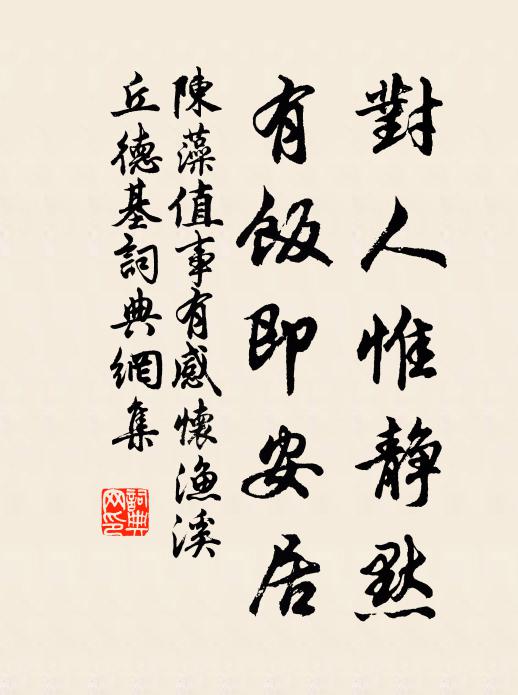 對人惟静默
有飯即安居
陳藻值事有感懷漁溪
丘德基詞典網集
詞典網印